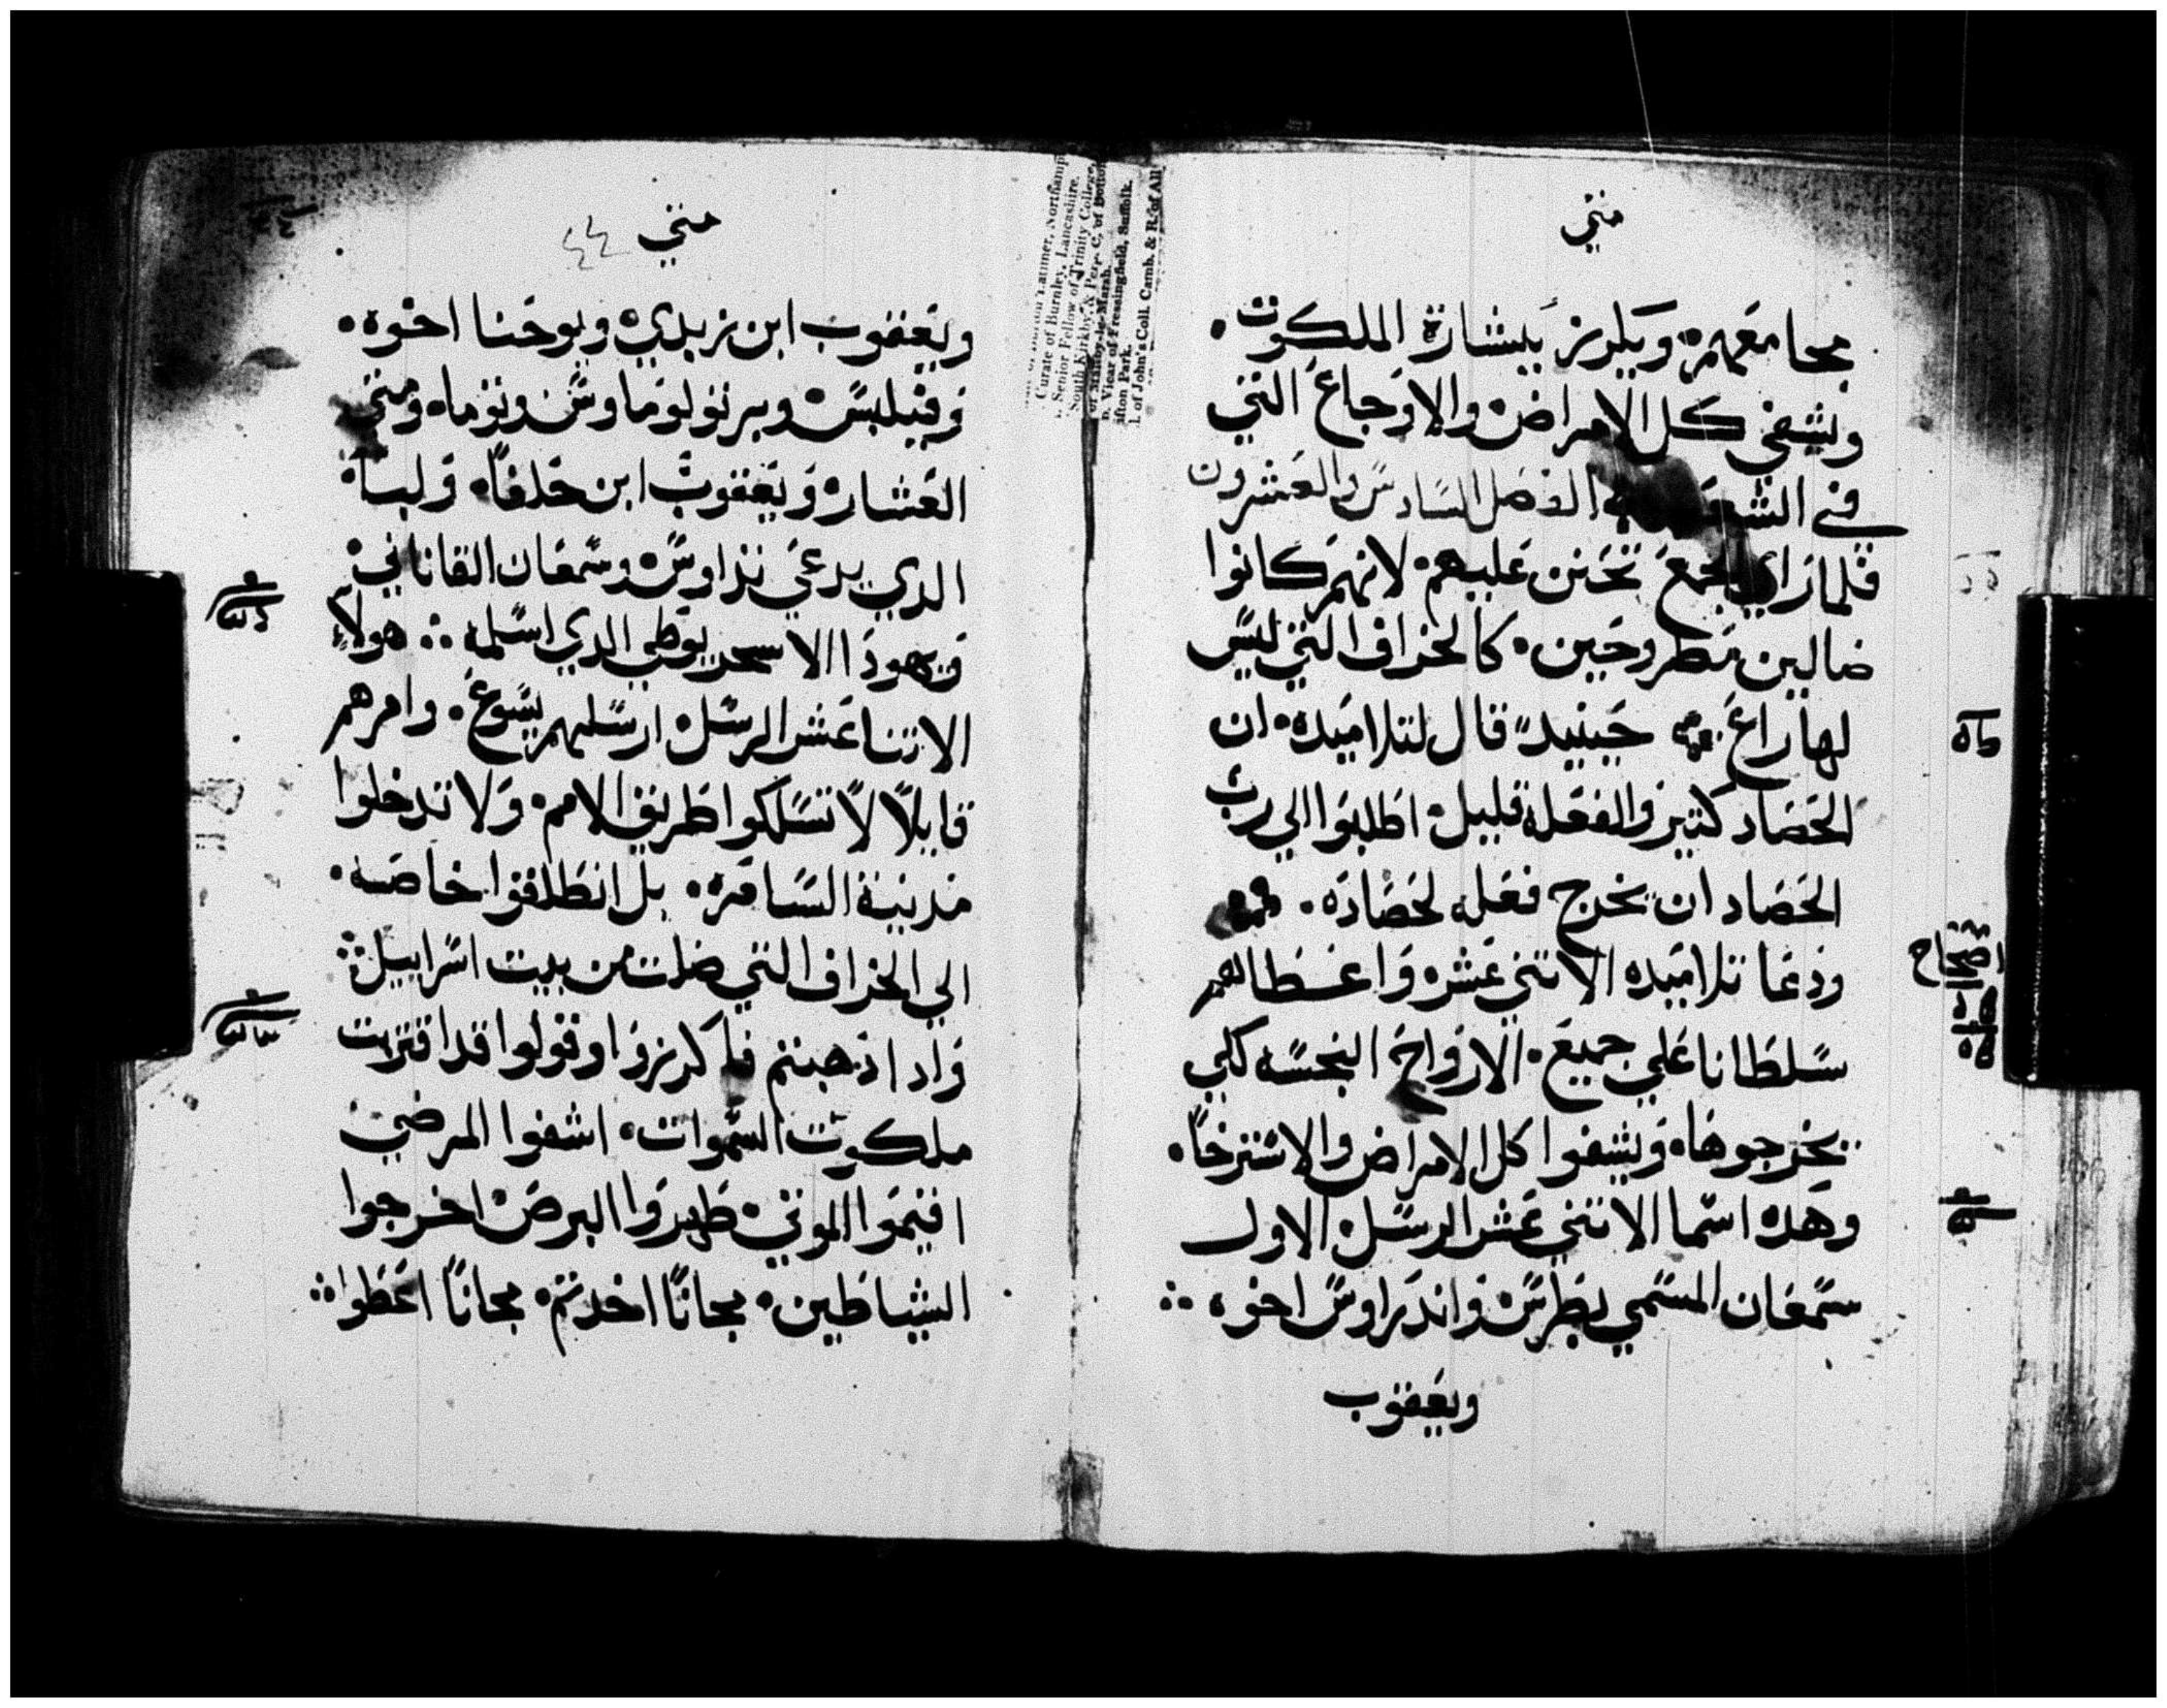 متي
مجامعهم، ويكرز ببشارة الملكوت.
ويشفي كل الامراض والاوجاع التي
في الشعب الفصل السادس والعشرون
فلما راي الجمع تحنن عليهم، لانهم كانوا
ضالين مطروحين. كالخراف التي ليس
لها راع. حينيدً قال لتلاميده، ان
الحصاد كتير والفعله قليل، اطلبوا الي رب
الحصاد ان يخرج فعله لحصاده.
ودعا تلاميده الاتني عشر، واعطالهم
سلطانا علي جميع، الارواح النجسه لكي
يخرجوها، ويشفوا كل الامراض والاسترخا،
وهده اسما الاتني عشر الرسل، الاول
سمعان المسمي بطرس، واندراوس اخوه
ويعقوب
اصحاح
متي ٤٤
ويعقوب ابن زبدي، ويوحنا اخوه.
وفيلبس، وبرتولوماوس، وتوما، ومتي
العشار، ويعقوب ابن حلفا، ولبا،
الدي يدعي تداوس، وسمعان القاناني،
ويهودا الاسخريوطي الدي اسلمه ؞ هولاء
الاتنا عشر الرسل، ارسلهم يسوع. وامرهم
قايلاً لا تسلكوا طريق الامم، ولا تدخلوا
مدينة السامره. بل انطلقوا خاصه.
الي الخراف التي ضلت من بيت اسراييل؞
واد ادهبتم فاكرزوا وقولوا قد اقتربت
ملكوت السموات، اشفوا المرضي
اقيموا الموتي، طهروا البرص، اخرجوا
الشياطين، مجانًا اخدتم، مجانًا اعطوا؞
Curate of Burnley, Lancashire.
Senior Fellow of Trinity College,
Vicar of Fressingfield, Suffolk.
fton Park.
of John's Coll. Camb. & R. of All